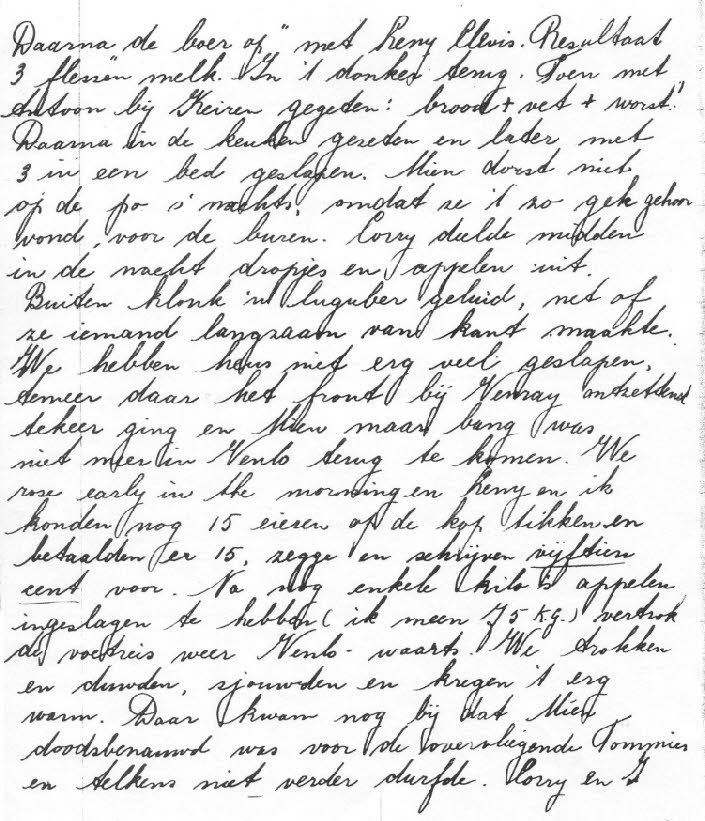 Daarna „de boer op" met Leny Clevis. Resultaat
3 flessen melk. In 't donker terug. Toen met
Antoon bij Keiren gegeten: brood + vet + worst!
Daarna in de keuken gezeten en later met
3 in een bed geslapen. Mien dorst niet
op de po 's nachts, omdat ze 't zo gek gehoor
vond, voor de buren. Corry deelde midden
in de nacht dropjes en appelen uit.
Buiten klonk 'n luguber geluid, net of
ze iemand langzaam van kant maakte.
We hebben heus niet erg veel geslapen,
temeer daar het front bij Venray ontzettend
tekeer ging en Mien maar bang was
niet meer in Venlo terug te komen. We
rose early in the morning en Leny en ik
konden nog 15 eieren op de kop tikken en
betaalden er 15, zegge en schrijven vijftien
cent voor. Na nog enkele kilo's appelen
ingeslagen te hebben (ik meen 75 K.G.) vertrok
de voetreis weer Venlo-waarts. We trokken
en duwden, sjouwden en kregen 't erg
warm. Daar kwam nog bij dat Mien
doodsbenauwd was voor de overvliegende Tommies
en telkens niet verder durfde. Corry en I